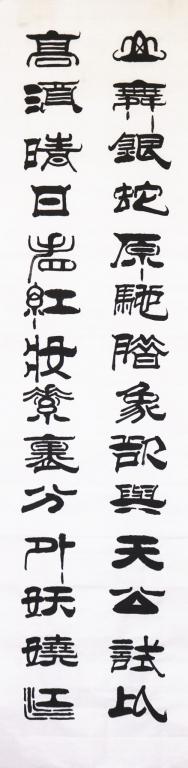 山舞銀蛇原馳腊象欲與天公試比
高須晴日看紅妝素裹分外妖嬈江